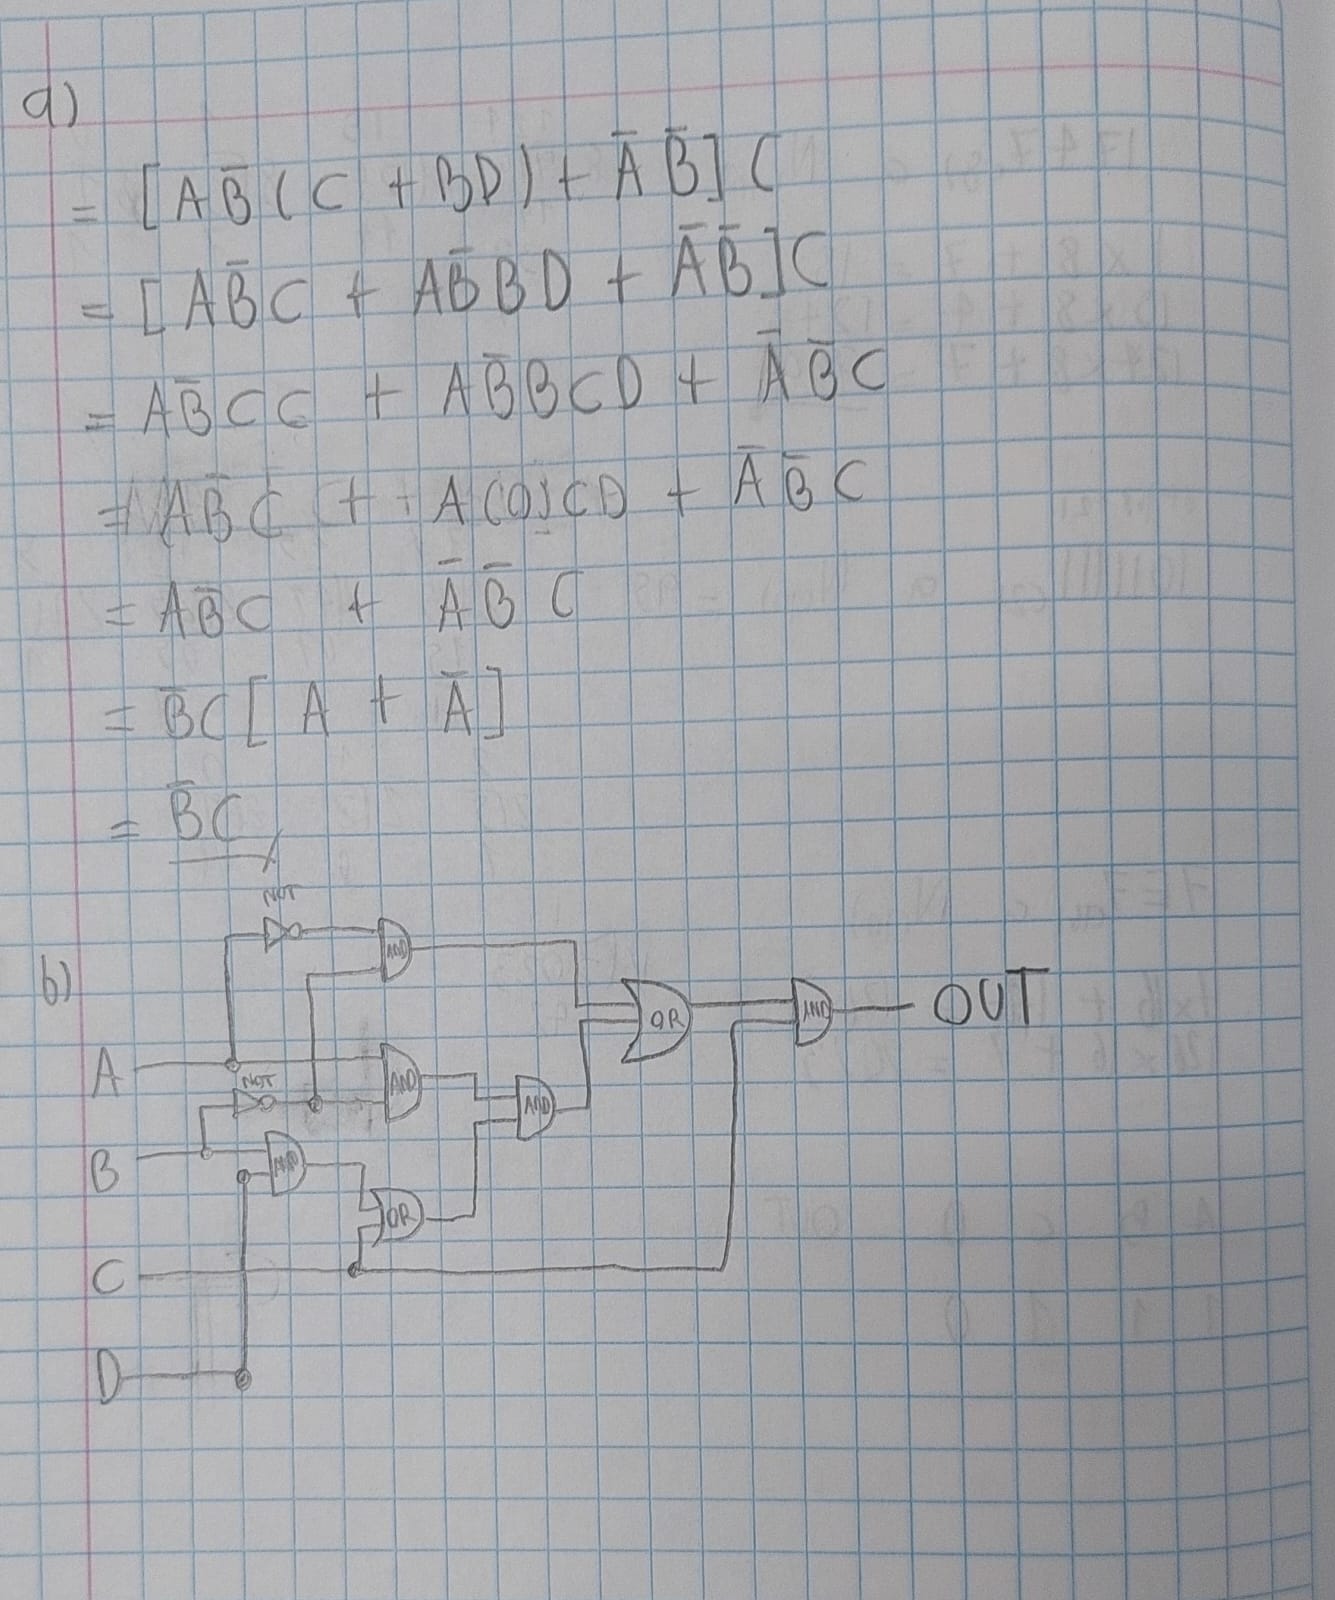 a)
= [AB̄(C + BD) + ĀB̄]C
= [AB̄C + AB̄BD + ĀB̄]C
= AB̄CC + AB̄BCD + ĀB̄C
= AB̄C + A(0)CD + ĀB̄C
= AB̄C + ĀB̄C
= B̄C[A + Ā]
= B̄C
b)
NOT
AND
OR
AND
OUT
A
NOT
AND
AND
B
AND
OR
C
D